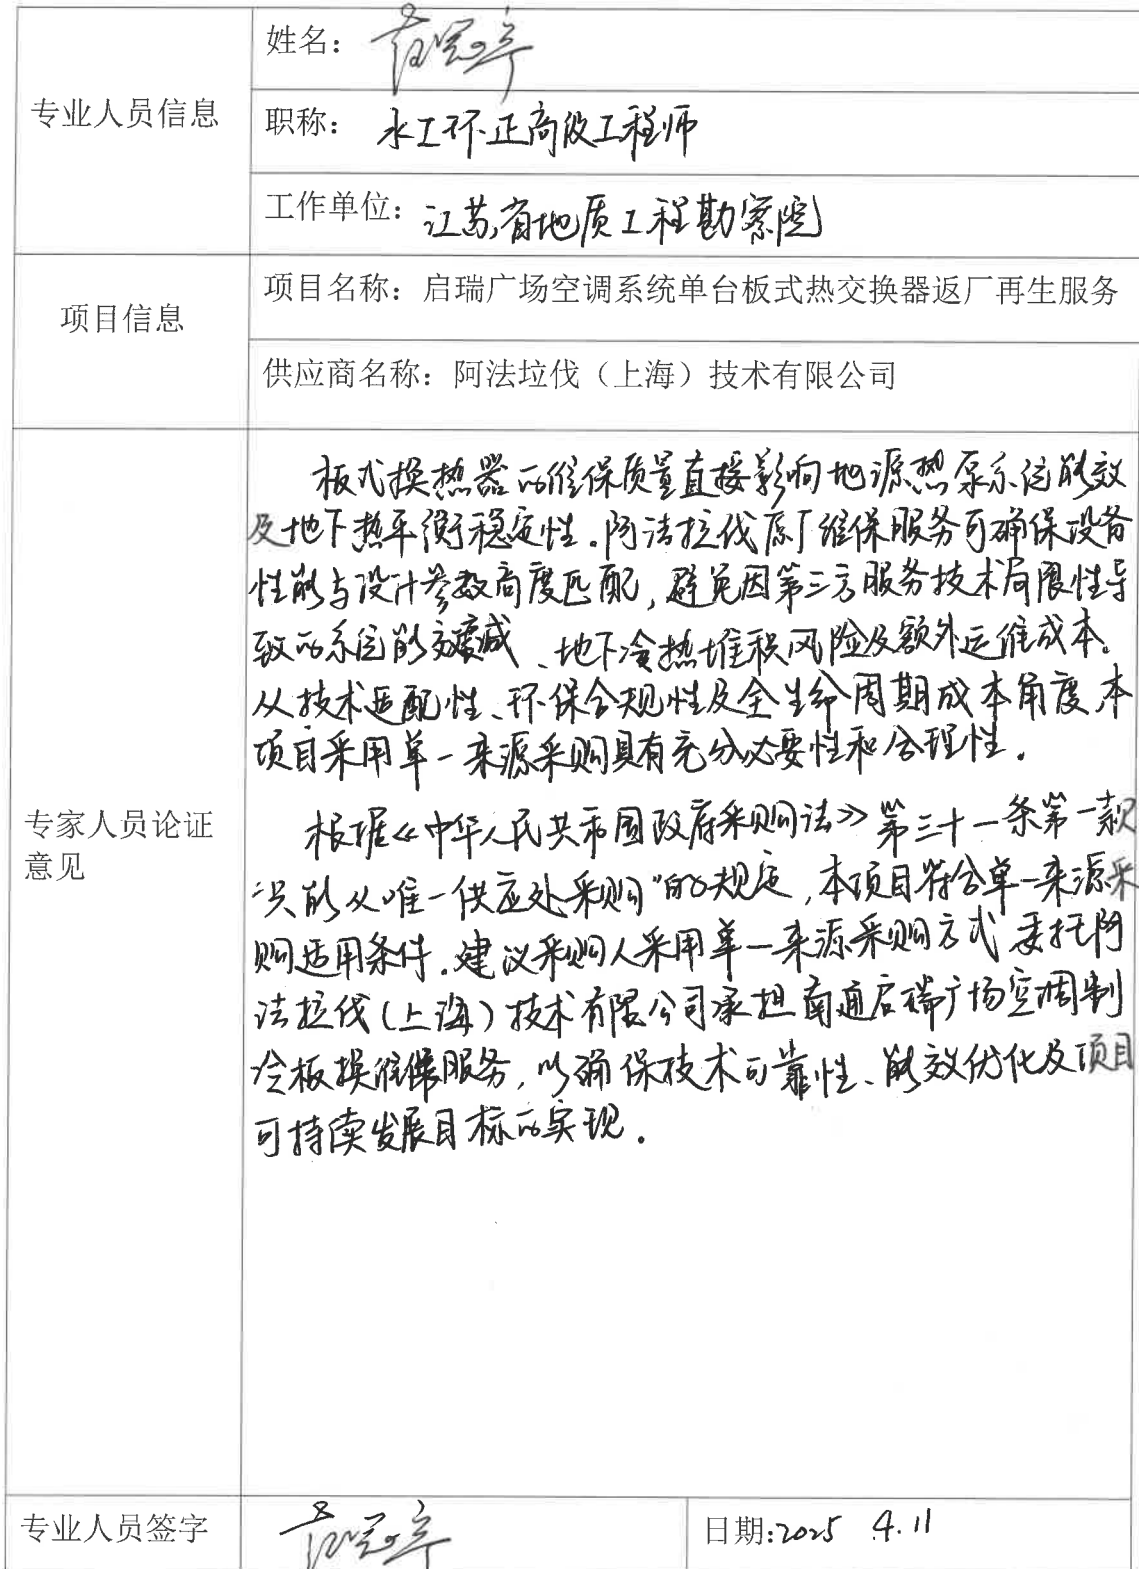 专业人员信息
姓名：
职称： 水工环正高级工程师
工作单位：江苏省地质工程勘察院
项目信息
项目名称：启瑞广场空调系统单台板式热交换器返厂再生服务
供应商名称：阿法垃伐（上海）技术有限公司
专家人员论证
意见
板式换热器的维保质量直接影响地源热泵系统能效
及地下热平衡稳定性.阿法拉伐原厂维保服务可确保设备
性能与设计参数高度匹配,避免因第三方服务技术局限性导
致的系统能效衰减、地下冷热堆积风险及额外运维成本。
从技术适配性、环保合规性及全生命周期成本角度本
项目采用单一来源采购具有充分必要性和合理性.
根据《中华人民共和国政府采购法》第三十一条第一款
"只能从唯一供应处采购"的规定,本项目符合单一来源采
购适用条件.建议采购人采用单一来源采购方式委托阿
法拉伐(上海)技术有限公司承担南通启瑞广场空调制
冷板换维保服务,以确保技术可靠性、能效优化及项目
可持续发展目标的实现.
专业人员签字
日期:2025 4.11